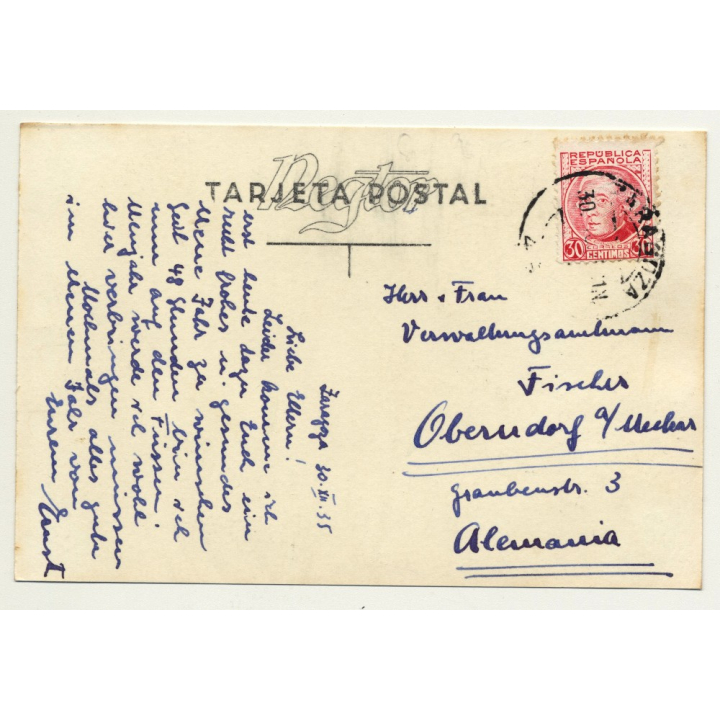 TARJETA POSTAL
REPÚBLICA
ESPAÑOLA
30 CENTIMOS 30
ZARAGOZA
30
Zaragoza 30.XII.35
Liebe Eltern!
Leider komme ich
erst heute dazu Euch ein
recht frohes u. gesundes
Neues Jahr zu wünschen
Seit 48 Stunden bin ich
nun auf den Füssen.
Neujahr werde ich wohl
hier verbringen müssen
Nochmals alles gute
im Neuen Jahr von
Eurem Ernst
Herr u Frau
Verwaltungsamtmann
Fischer
Oberndorf a/Neckar
Graubenstr. 3
Alemania